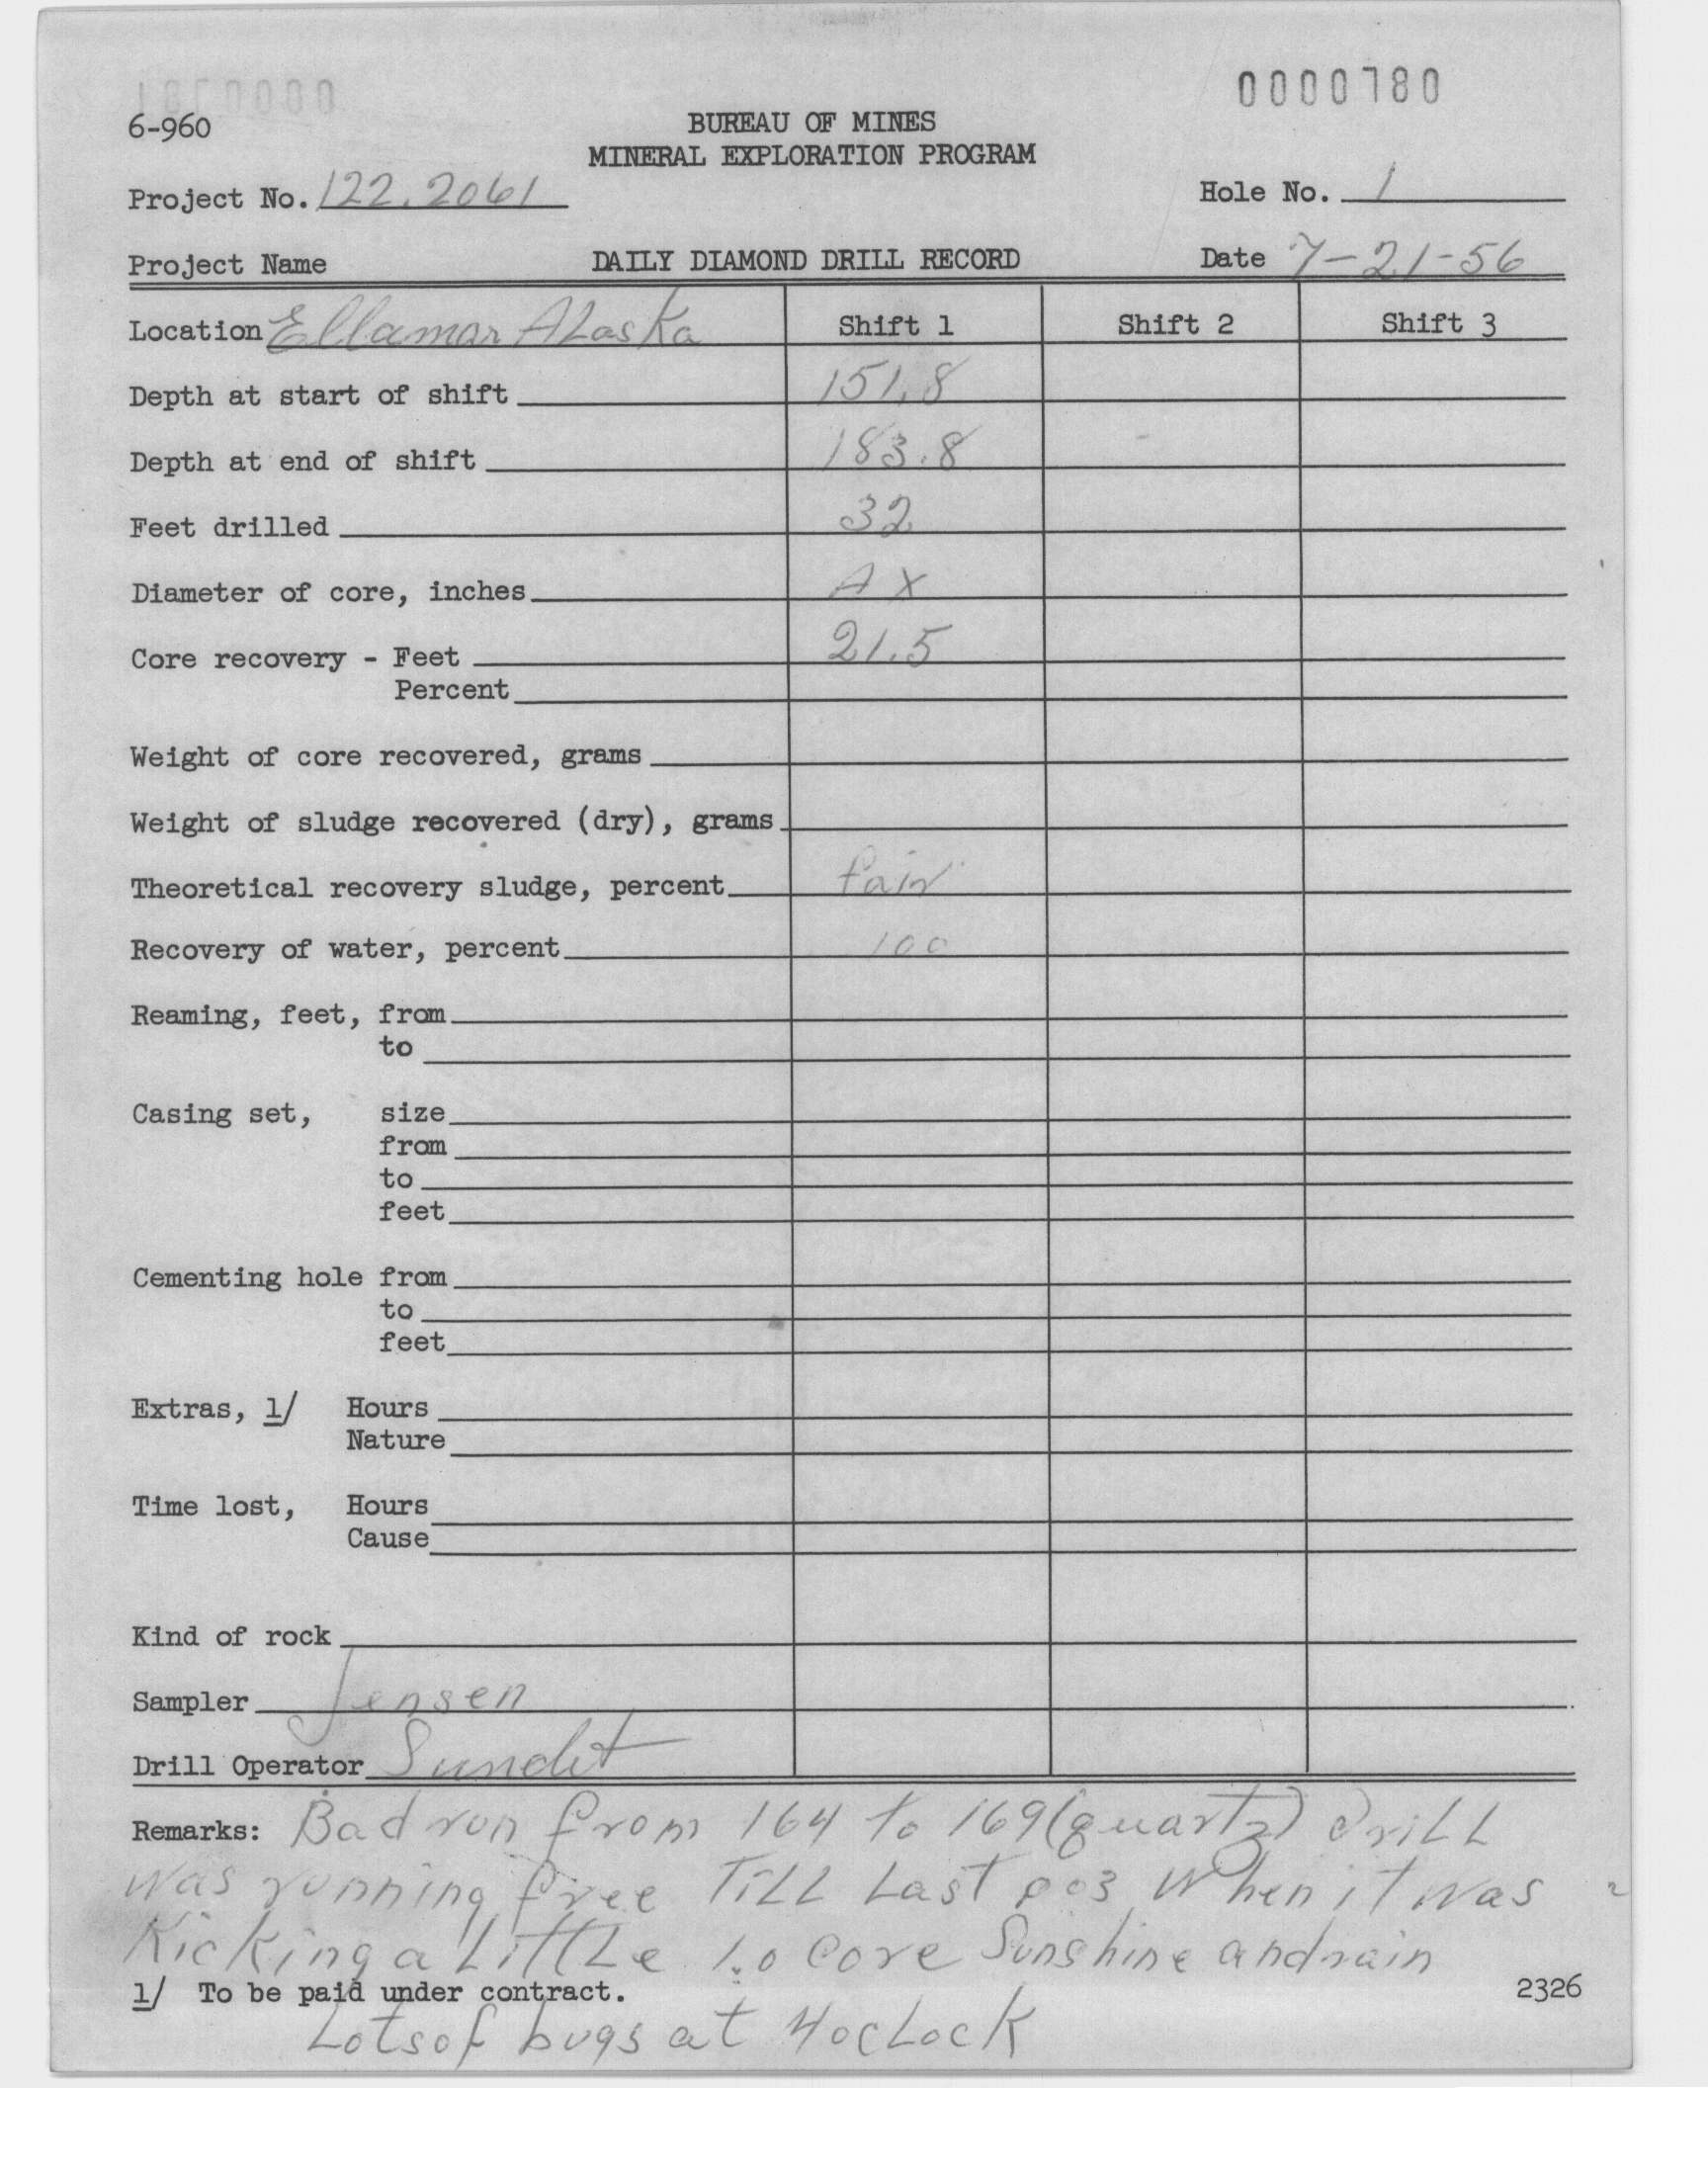 0000180
6-960
BUREAU OF MINES
MINERAL EXPLORATION PROGRAM
Project No. 122.2061
Hole No. 1
Project Name
DAILY DIAMOND DRILL RECORD
Date 7-21-56
Location Ellamar ALaska Shift 1 Shift 2 Shift 3
Depth at start of shift 151.8
Depth at end of shift 183.8
Feet drilled 32
Diameter of core, inches AX
Core recovery - Feet 21.5
Percent
Weight of core recovered, grams
Weight of sludge recovered (dry), grams
Theoretical recovery sludge, percent fair
Recovery of water, percent 100
Reaming, feet, from
to
Casing set, size
from
to
feet
Cementing hole from
to
feet
Extras, 1/ Hours
Nature
Time lost, Hours
Cause
Kind of rock
Sampler Jensen
Drill Operator Sundt
Remarks: Bad run from 164 to 169 (quartz) drill
was running free TiLL Last when it was
Kicking a LittLe core Sunshine and rain
1/ To be paid under contract. 2326
Lots of bugs at 4 ocLock